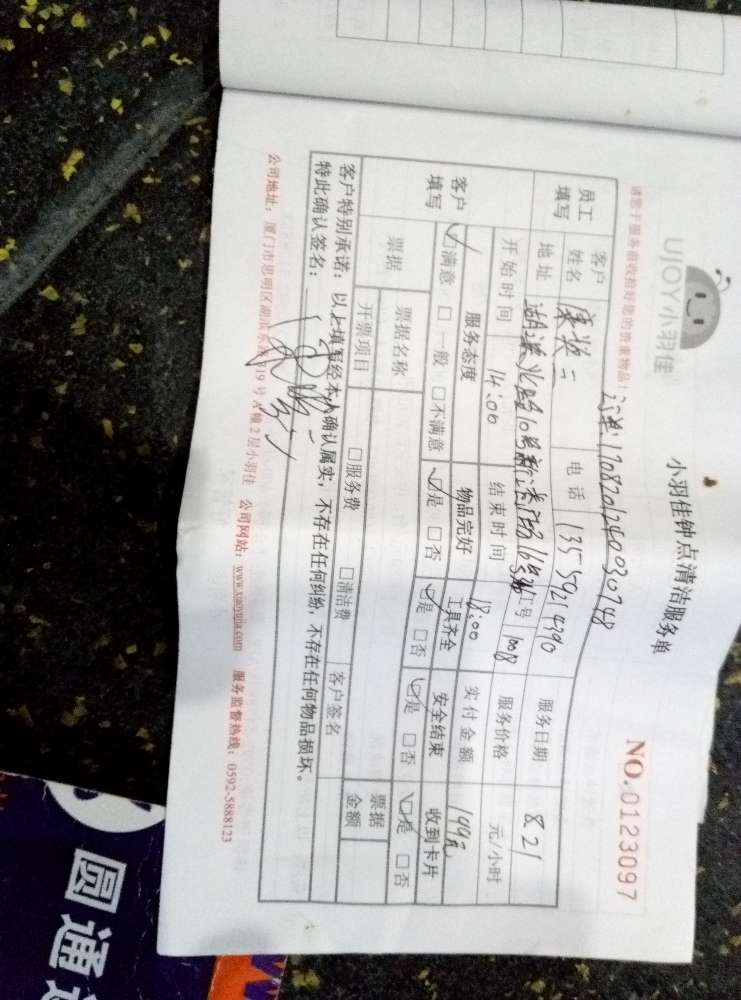 UJOY小羽佳
小羽佳钟点清洁服务单
NO.0123097
请您于服务前收捡好您的贵重物品!
员工填写
客户姓名
电话
13559214390
服务日期
8.21
地址
工号
1008
服务价格
元/小时
开始时间
14:00
结束时间
18:00
实付金额
199元
客户填写
服务态度
物品完好
工具齐全
安全结束
收到卡片
☑满意 □一般 □不满意
☑是 □否
☑是 □否
☑是 □否
☑是 □否
票据
票据名称
开票项目
□服务费 □清洁费
客户签名
票据金额
客户特别承诺:以上填写经本人确认属实,不存在任何纠纷,不存在任何物品损坏。
特此确认签名:
公司地址:厦门市思明区湖滨东路319号A幢2层小羽佳 公司网站:www.xiaoyujia.com 服务监督热线:0592-5888123
圆通